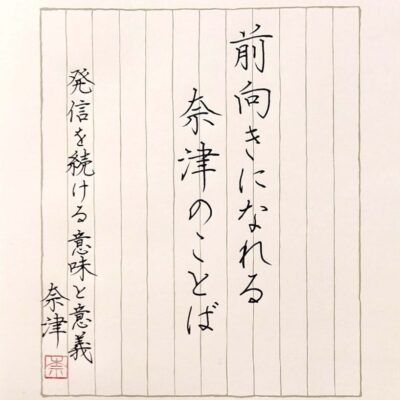 前向きになれる
奈津のことば
発信を続ける意味と意義
奈津